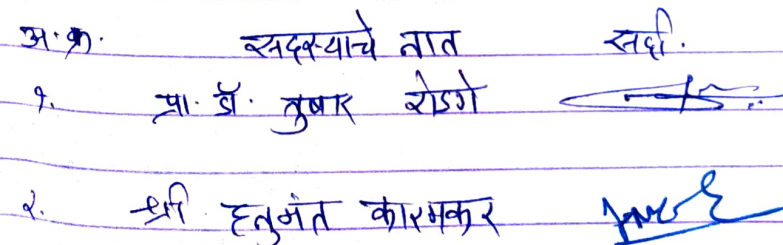 अ.क्र. सदस्याचे नाव सही.
१. प्रा. डॉ. तुषार रोडगे
२. श्री हनुमंत कारमकर